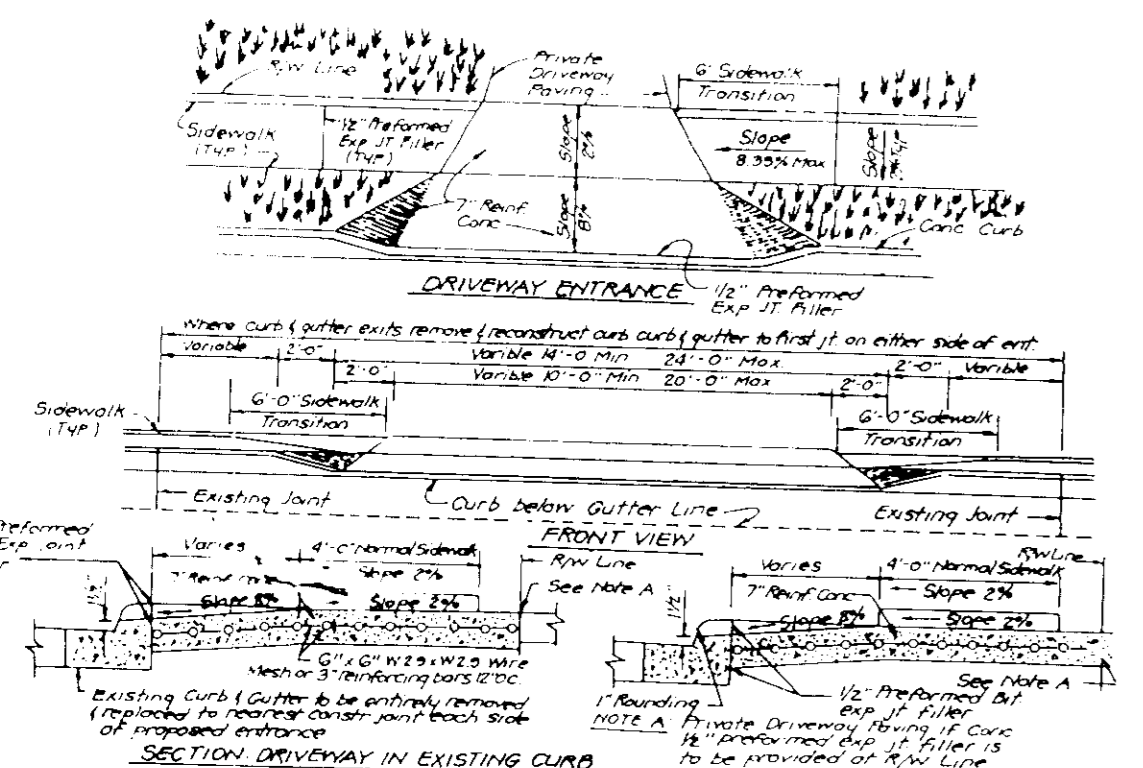 R/W Line
Private
Driveway
Paving
6' Sidewalk
Transition
Sidewalk
(TYP)
1/2" Preformed
Exp JT Filler
(TYP)
Slope
2%
Slope
8.33% Max
Slope
2% TYP
7" Reinf.
Conc
Slope
8%
Conc Curb
DRIVEWAY ENTRANCE
1/2" Preformed
Exp JT. Filler
Where curb & gutter exits remove & reconstruct curb curb & gutter to first jt. on either side of ent.
Variable
2'-0"
Varible 14'-0 Min 24'-0" Max.
2'-0"
Varible
2'-0"
Varible 10'-0" Min 20'-0" Max
2'-0"
6'-0" Sidewalk
Transition
6'-0" Sidewalk
Transition
Sidewalk
(TYP)
Existing Joint
Curb below Gutter Line
Existing Joint
FRONT VIEW
Preformed
Exp Joint
Varies
4'-0" Normal Sidewalk
Slope 2%
R/W Line
See Note A
7" Reinf Conc
Slope 8%
Slope 2%
1 1/2"
6" x 6" W2.9 x W2.9 Wire
Mesh or 3" reinforcing bars 12" oc.
Existing Curb & Gutter to be entirely removed
& replaced to nearest constr joint each side
of proposed entrance
SECTION: DRIVEWAY IN EXISTING CURB
R/W Line
Varies
4'-0" Normal Sidewalk
7" Reinf Conc
Slope 2%
Slope 8%
Slope 2%
1 1/2"
See Note A
1" Rounding
1/2" Preformed Bit.
exp jt filler
NOTE A: Private Driveway Paving if Conc
1/2" preformed exp jt. filler is
to be provided at R/W Line